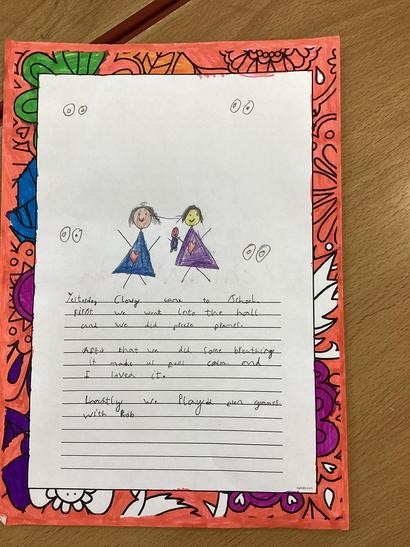 Yesterday Clowge came to School.
First we went into the hall
and we did games.
After that we did some breathing
it made us feel calm and
I loved it.
Lastly we Played fun games
with Rob